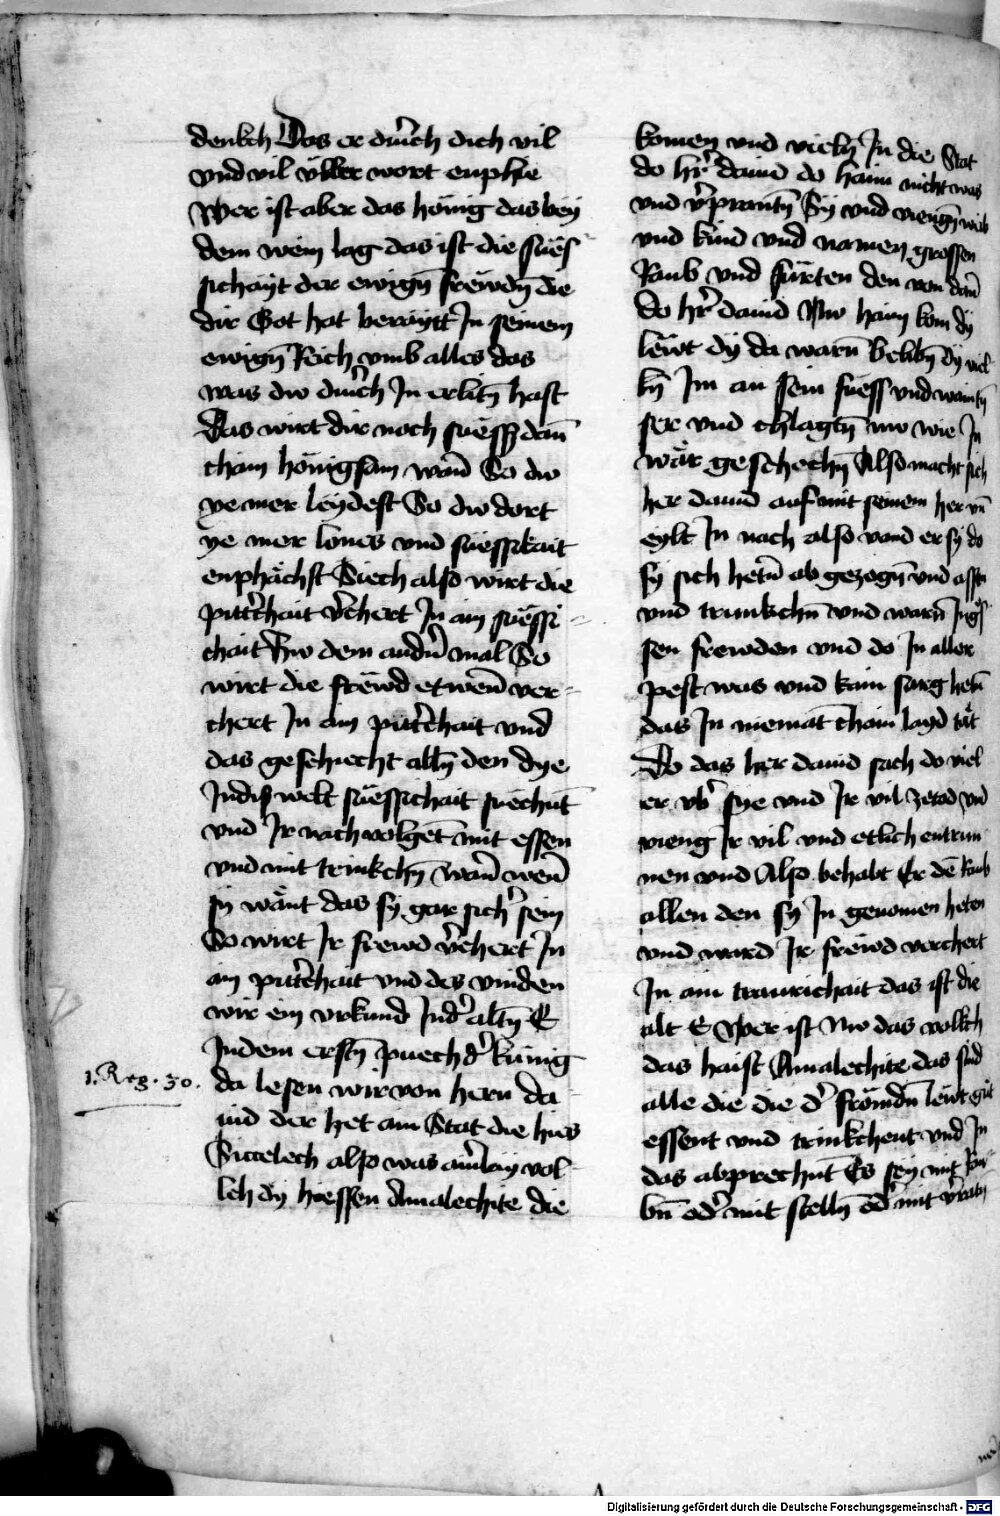 denkch Das er durch dich vil
vnd vil vbler wort enphie
Wer ist aber das hönig das bey
dem wein lag das ist die süess
sichayt der ewign̄ frewdn̄ die
dir Got hat berayt In seinem
ewign̄ Reich vmb alles das
was dw durch In erlitn̄ hast
Das wirt dir noch süesser dan̄
chain hönigsam wan̄ So dw
ye mer leydest So dw dort
ye mer lones vnd süessikait
enphächst Siech also wirt die
pittērhait v̄chert In ain süessi-
chait Hw dem andn̄ mal So
wirt die frewd etwen̄ ver-
chert In ain pittērhait vnd
das geschiecht alln̄ den dye
In diser welt süessichait suechnt
vnd Ir nachvolgent mit essen
vnd mit trinkchn̄ wan̄ wen̄
sy wänt das sy gar sicher sein
So wirt Ir frewd v̄chert In
ain pittērhait vnd des vinden
wir ein vrkund In der altn̄ E
In dem erstn̄ puech der künig
1. Reg. 30.
da lesen wir von hern da-
uid der het ain Stat die hies
Siccelech also was ain lay vol-
kch dy hiessen Amalechite die
komen vnd vieln̄ In die Stat
do her dauid do haim nicht was
vnd v̄prantn̄ Sy vnd viengn̄ weib
vnd kind vnd namen grossen
Raub vnd fürten den von dan̄
Do her dauid Nw haim kom dy
lewt dy da warn̄ belibn̄ dy viel
ln̄ Im an sein füess vnd waintn̄
ser vnd chlagtn̄ nw wie In
wär geschechn̄ Also macht sich
her dauid auf mit seinem her vn̄
eylt In nach also vand er sy do
sy sich hetn̄ ab gezogn̄ vnd assn̄
vnd trunkchn̄ vnd warn̄ In gros
sen frewden vnd do In aller
pest was vnd kain sarg hetn̄
das In niemant chain layd tät
Do das her dauid sach do viel
er vber sye vnd Ir vil zetod vn̄
vieng Ir vil vnd etlich entrun
nen vnd Also behabt Er den Raub
allen den sy In genomen heten
vnd ward Ir frewd verchert
In ain traurichait das ist die
alt E Wer ist Nw das volkch
das haist Amalechite das sind
alle die die der frömdn̄ lewt guet
essent vnd trinkchent vnd In
das abprechn̄t Es sey mit Rau-
bn̄ oder mit steln̄ oder mit v̄ratn̄
Digitalisierung gefördert durch die Deutsche Forschungsgemeinschaft - DFG